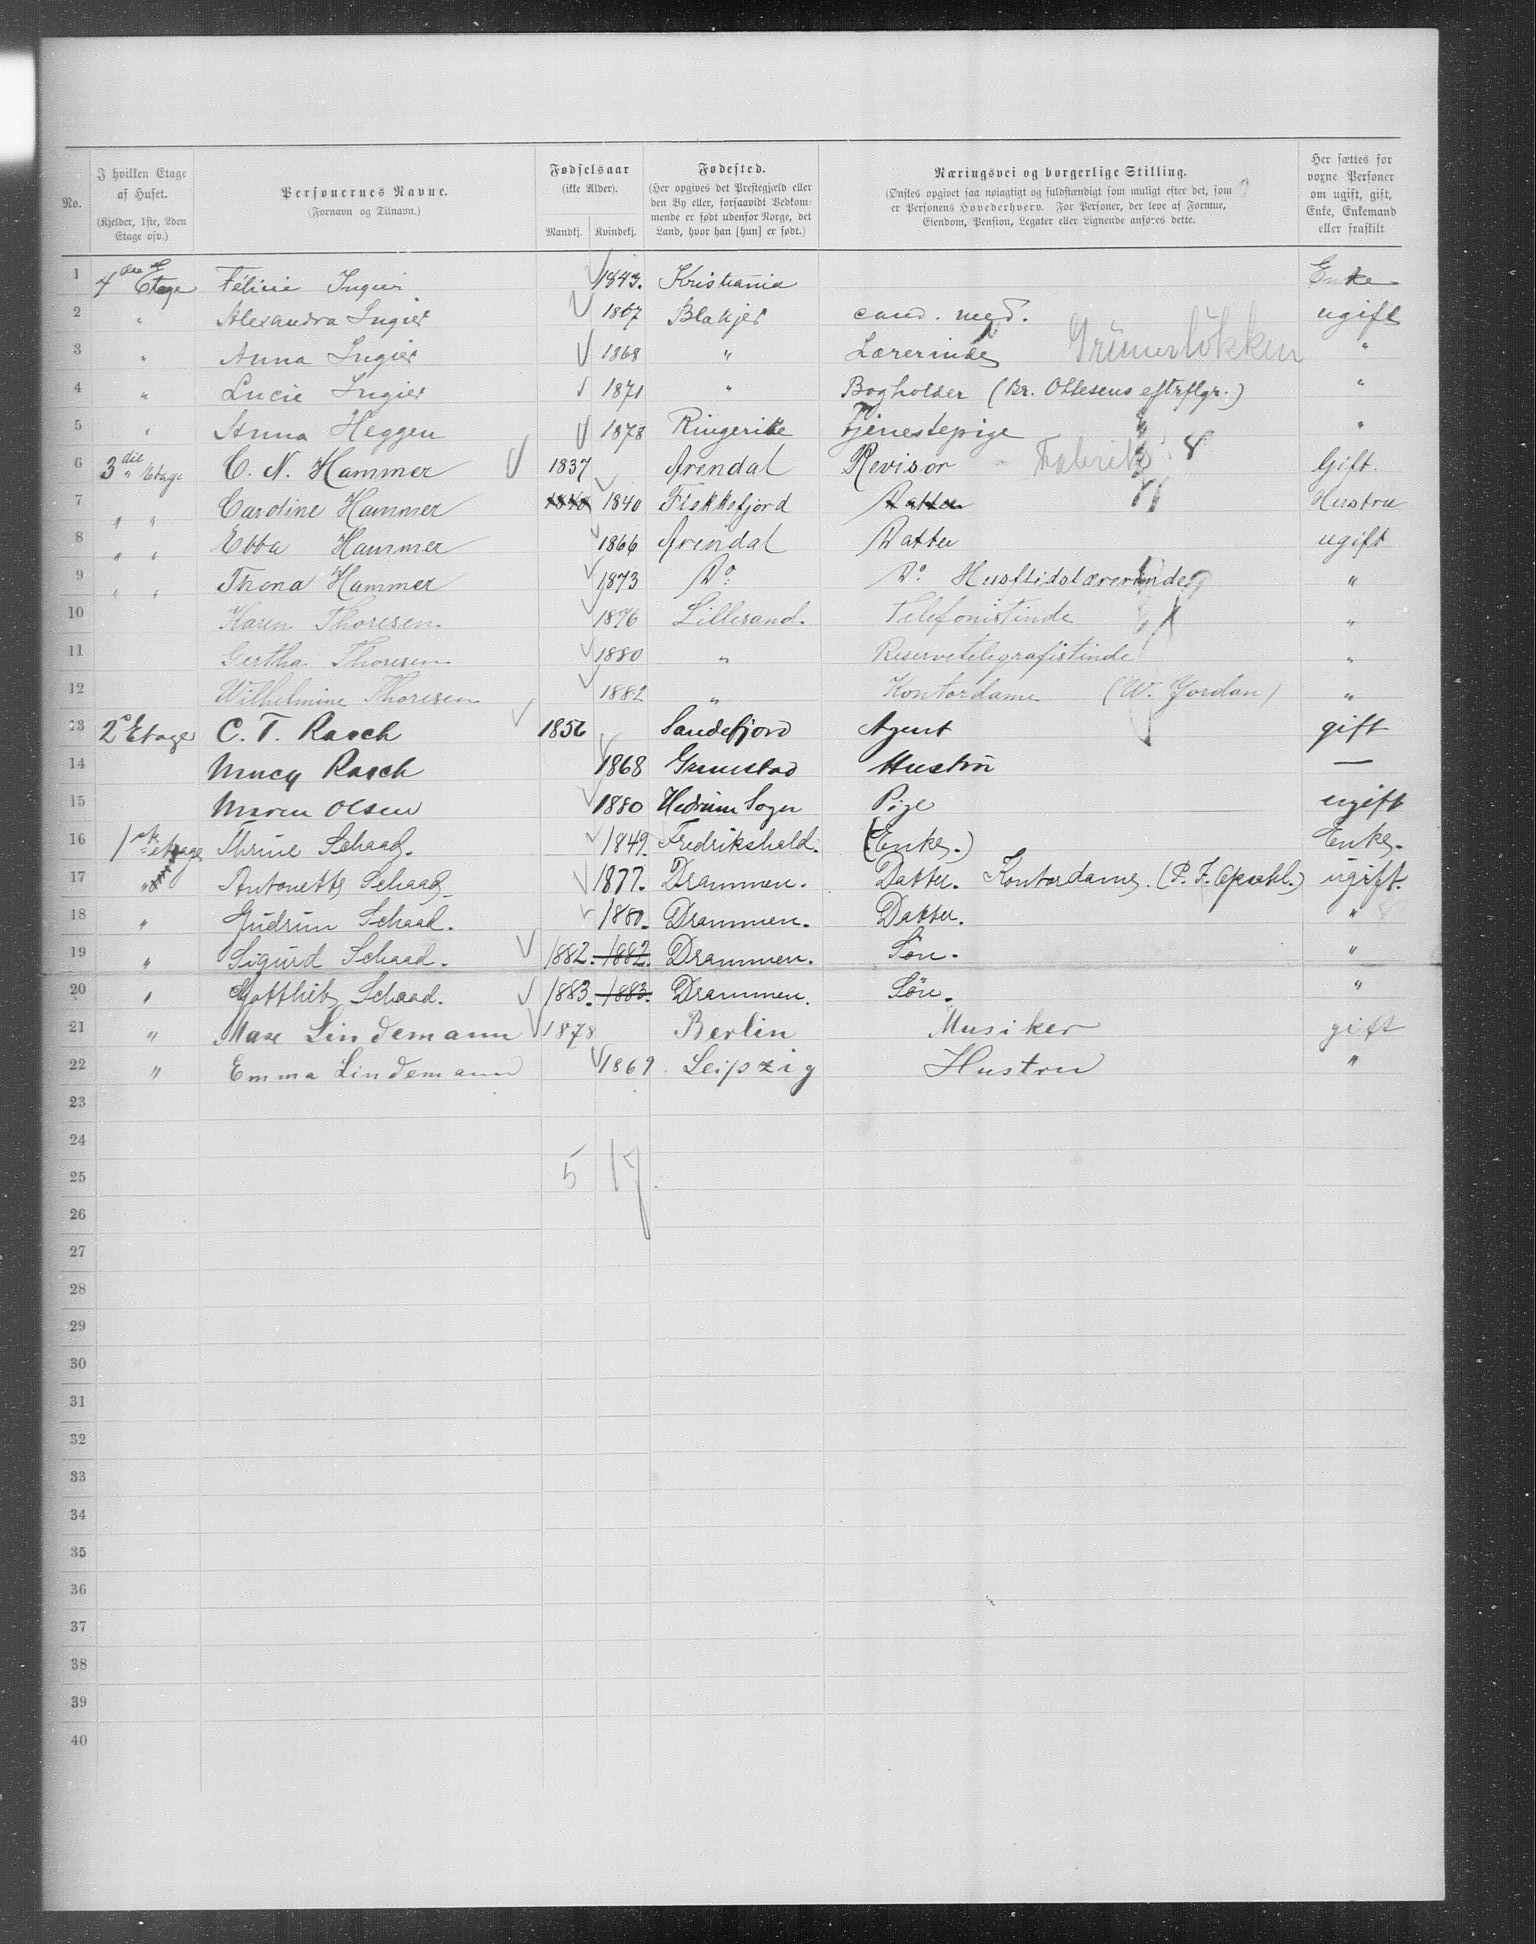 No. I hvilken Etage af Huset. (Kjelder, 1ste, 2den Etage osv.) Personernes Navne. (Fornavn og Tilnavn.) Fødselsaar (ikke Alder). Mandkj. Kvindekj. Fødested. (Her opgives det Prestegjæld eller den By eller, forsaavidt Vedkommende er født udenfor Norge, det Land, hvor han [hun] er født.) Næringsvei og borgerlige Stilling. (Ønskes opgivet saa nøiagtigt og fuldstændigt som muligt efter det, som er Personens Hovederhverv. For Personer, der leve af Formue, Eiendom, Pension, Legater eller Lignende anføres dette.) Her sættes for voxne Personer om ugift, gift, Enke, Enkemand eller fraskilt
1 4 Etage Félicie Ingier 1843. Kristiania Enke
2 " Alexandra Ingier 1867 Blakjer cand. med. ugift
3 " Anna Ingier 1868 " Lærerinde Grünerløkken "
4 " Lucie Ingier 1871 " Bogholder (Br. Ottesens eftrflgr.) "
5 " Anna Heggen 1878 Ringerike Tjenestepige "
6 3die Etage C. N. Hammer 1837 Arendal Revisor Fabrik Gift.
7 " " Caroline Hammer 1840 1840 Flekkefjord Datter Hustru
8 " " Ebba Hammer 1866 Arendal Datter ugift
9 " " Thona Hammer 1873 Do: Do Husflidslærerinde "
10 Karen Thoresen. 1876 Lillesand. Telefonistinde "
11 Gertha Thoresen 1880 " Reservetelegrafistinde "
12 Wilhelmine Thoresen 1882 " Kontordame (W. Jordan) "
13 2 Etage C. T. Rasch 1856 Sandefjord Agent gift
14 Rasch 1868 Grimstad Hustru —
15 Maren Olsen 1880 Hedrum Sogn Pige ugift
16 1ste etage Thrine Schaad. 1849. Fredrikshald. (Enke.) Enke.
17 " Antonette Schaad 1877. Drammen. Datter. Kontordame. (P. F. ) ugift.
18 " Gudrun Schaad. 1880. Drammen. Datter. "
19 " Sigurd Schaad. 1882. 1882. Drammen. Søn. "
20 " Gottlieb Schaad. 1883. 1883. Drammen. Søn. "
21 " Max Lindemann 1878 Berlin Musiker gift
22 " Emma Lindemann 1869. Leipzig Hustru "
23
24
25 5 17
26
27
28
29
30
31
32
33
34
35
36
37
38
39
40